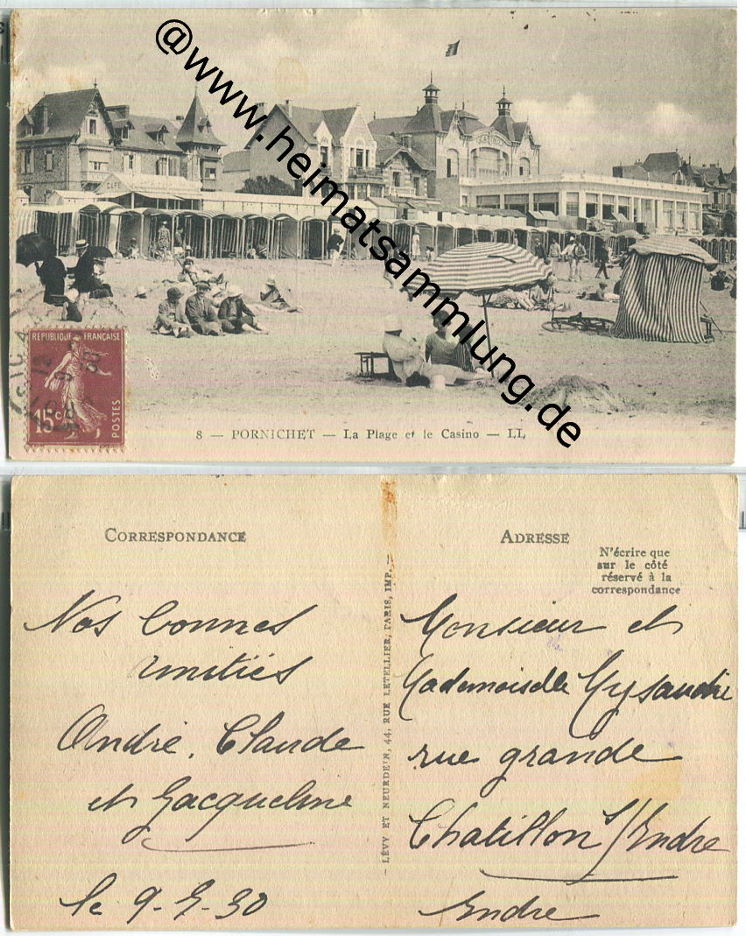 @www.heimatsammlung.de
CAFÉ
CASINO
RÉPUBLIQUE FRANÇAISE
15c
POSTES
8 — PORNICHET — La Plage et le Casino — LL
CORRESPONDANCE
Nos bonnes
amitiés
André, Claude
et Jacqueline
le 9-9-30
LÉVY ET NEURDEIN, 44, RUE LETELLIER, PARIS, IMP.
ADRESSE
N'écrire que
sur le côté
réservé à la
correspondance
Monsieur et
Mademoiselle
rue grande
Chatillon s/Indre
Indre